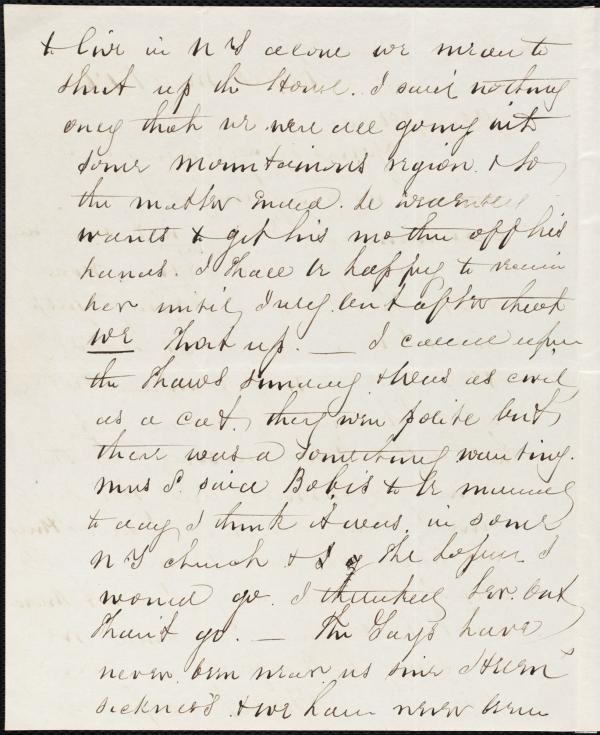 & live in N Y alone we mean to
shut up the House. I said nothing
only that we were all going into
some mountainous region & so
the matter ended. He evidently
wants to get his mother off his
hands. I shall be happy to receive
her until July. but after that
we shut up. — I called upon
the Shaws Sunday & was as civil
as a cat, they were polite but
there was a something wanting.
Mrs S. said Bob is to be married
to day I think it was, in some
N Y church & the before I
would go. I thanked her. but
shan't go. — The Gays have
never been near us since
sickness & we have never been